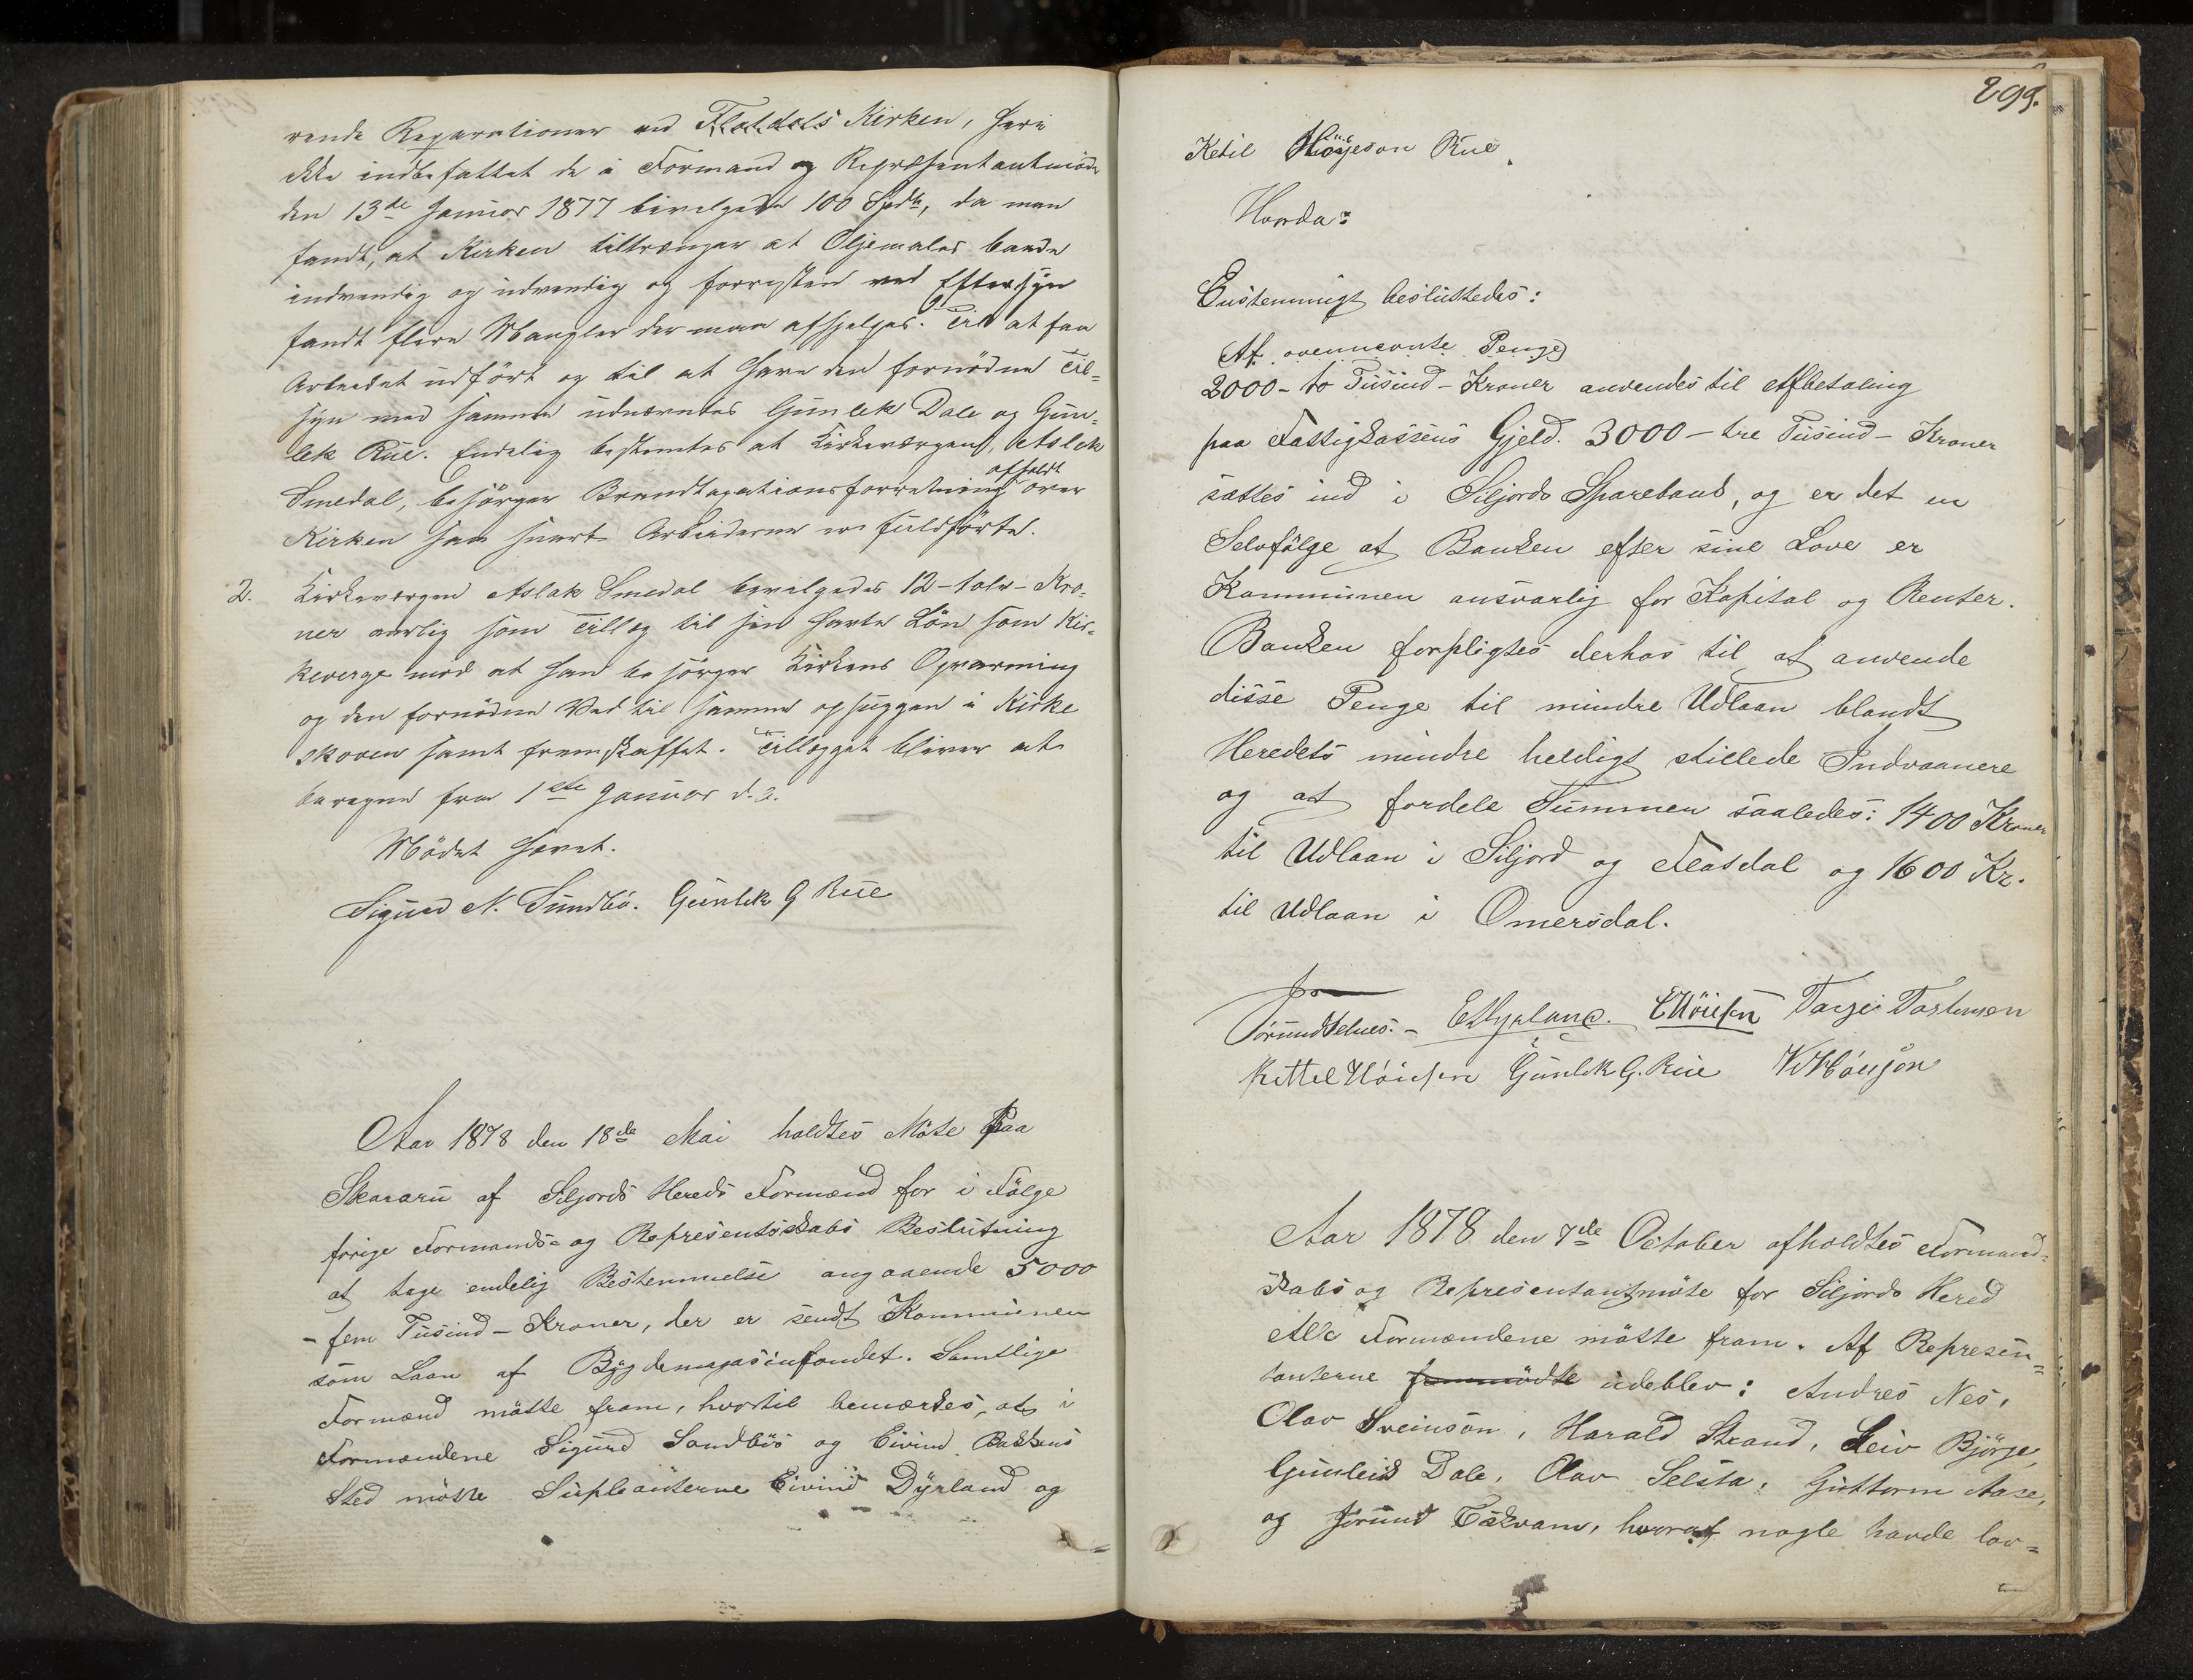 rende Reparationer ved Flatdals Kirken, heri
ikke indbefattet de i Formand og Repræsentantmöde
den 13de Januar 1877 bevilgede 100 Spdlr, da man
fandt, at Kirken tiltrænger at Oljemales baade
indvendig og udvendig og forresten ved Eftersyn
fandt flere Mangler der maa afhjælpes. Til at faa
Arbeidet udfört og til at have den fornödne Til=
syn med samme udnævntes Gunlek Dale og Gun=
lek Rue. Endelig bestemtes at Kirkeværgen, Aslak
Smedal, besörger Brandtaxationsforretning afholdt over
Kirken saa snart Arbeiderne ere fuldförte.
2. Kirkeværgen Aslak Smedal bevilgedes 12-tolv-Kro=
ner aarlig som Tillæg til sin havte Lön som Kir=
keverge mod at han besörger Kirkens Opvarming
og den fornödne Ved til samme ophuggen i Kirke
skoven samt fremskaffet. Tillægget bliver at
beregne fra 1ste Januar d. A.
Mödet hævet.
Sigurd N. Sundbö. Gunlek G Rue
Aar 1878 den 18de Mai holdtes Möte paa
Skararu af Siljords Hereds Formænd for i Fölge
forige Formands- og Represenskabs Beslutning
at tage endelig Bestemmelse angaaende 5000
- fem Tusind - Kroner, der er sendt Kommunen
som Laan af Bygdemagasinfondet. Samtlige
Formænd mötte fram, hvortil bemærkes, at i
Formændene Sigurd Sundbös og Eivind Bakkens
Sted mötte Supleanterne Eivind Dyrland og
299.
Ketil Höyeson Rue.
Hvorda:
Enstemmigt besluttedes:
(Af ovennevnte Penge)
2000 - to Tusind - Kroner anvendes til Afbetaling
paa Fattigkassens Gjeld. 3000 - tre Tusind - Kroner
sættes ind i Siljords Sparebank, og er det en
Selvfölge at Banken efter sine Love er
Kommunen ansvarlig for Kapital og Renter.
Banken forpligtes derhos til at anvende
disse Penge til mindre Udlaan blandt
Heredets mindre heldigt stillede Indvaanere
og at fordele Summen saaledes: 1400 Kroner
til Udlaan i Siljord og Flatdal og 1600 Kr.
til Udlaan i Omersdal.
Jörund Telnes. - E Dyrland. Tarjei
Kittel Höiesen Gunlek G. Rue
Aar 1878 den 7de October afholdtes Formand=
skabs og Representantmöte for Siljords Hered
Alle Formændene mötte fram. Af Represen=
tanterne frammödte udeblev: Andres Nes,
Olav Sveinson, Harald Strand, Leiv Björge,
Gunleik Dale, Olav Selsta, Guttorm Aase,
og Jörund Eskvam, hvoraf nogle havde lov=